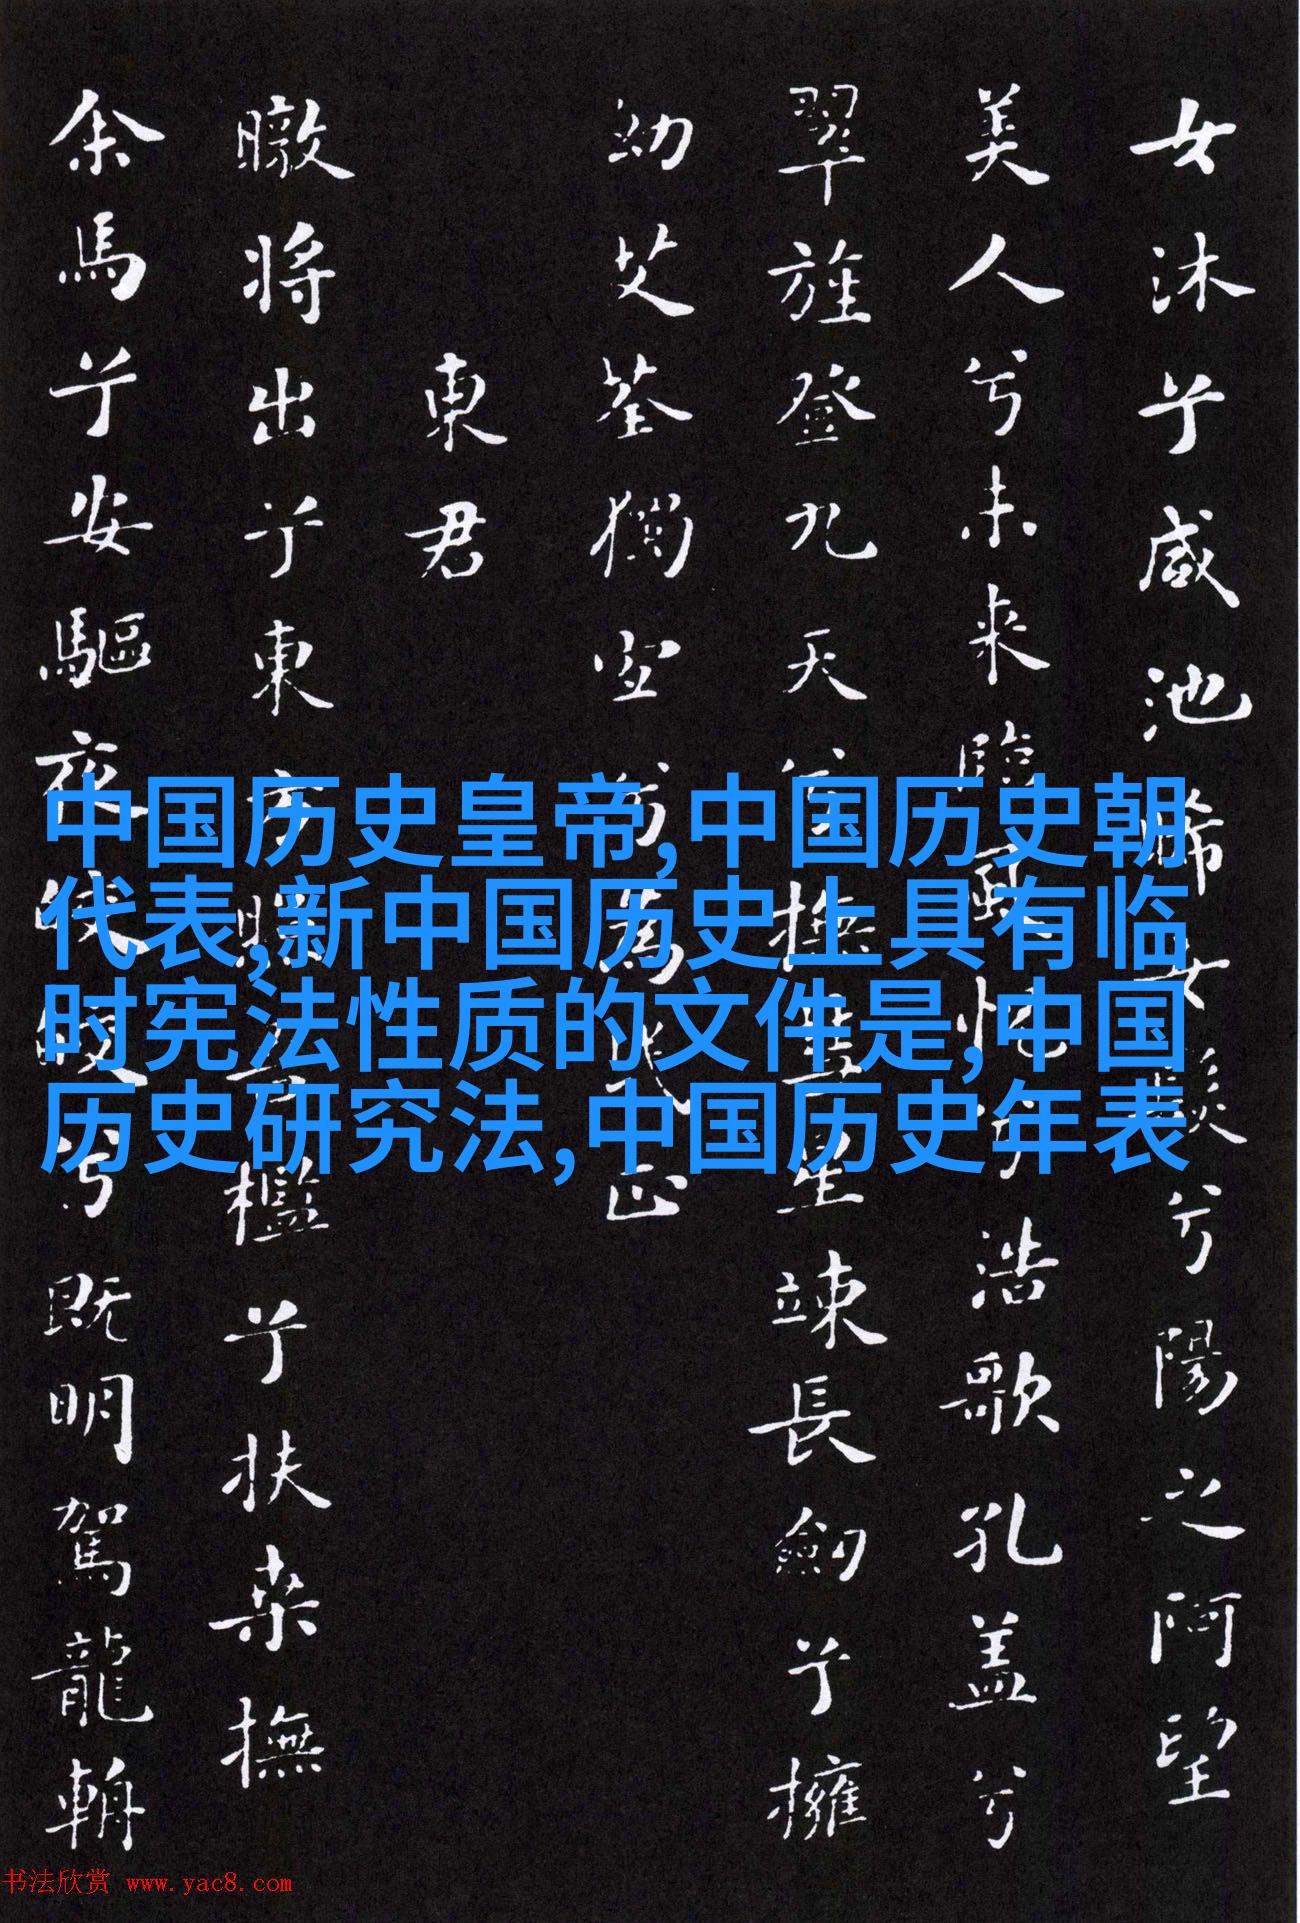 女沐兮咸池晞女髮兮陽之阿望
美人兮未来臨風怳兮浩歌孔盖兮
翠旌登九天兮撫彗星竦長劒兮擁
幼艾荃獨宜兮為民正
東君
暾将出兮東方照吾檻兮扶桑撫
余馬兮安驅夜皎皎兮既明駕龍輈
中国历史皇帝,中国历史朝
代表,新中国历史上具有临
时宪法性质的文件是,中国
历史研究法,中国历史年表
书法欣赏 www.yac8.com